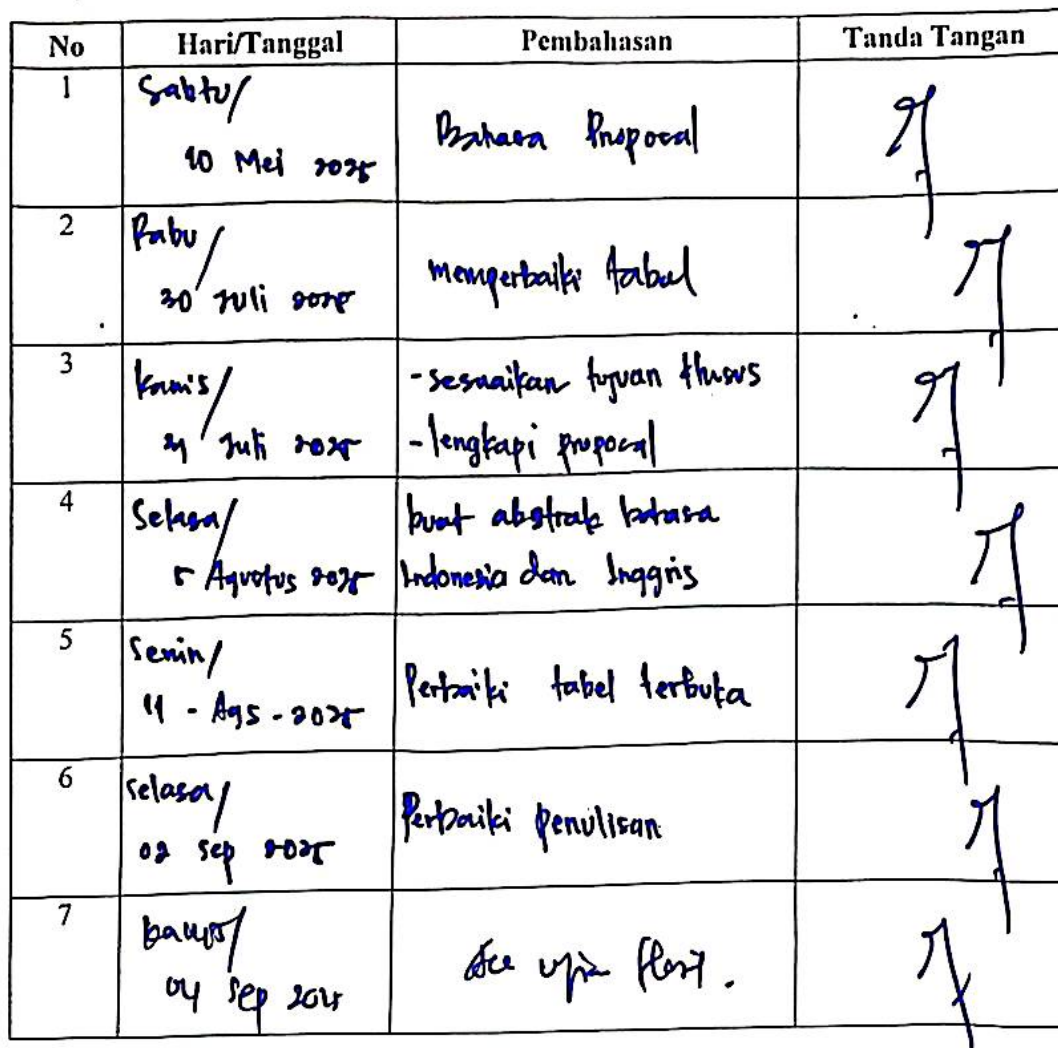 No Hari/Tanggal Pembahasan Tanda Tangan
1 Sabtu/
10 Mei 2025
Bahasa Proposal
2 Rabu/
30 Juli 2025
memperbaiki tabel
3 Kamis/
31 Juli 2025
- sesuaikan tujuan khusus
- lengkapi proposal
4 Selasa/
5 Agustus 2025
buat abstrak bahasa
Indonesia dan Inggris
5 Senin/
11 - Ags - 2025
Perbaiki tabel terbuka
6 selasa/
02 sep 2025
Perbaiki penulisan
7 kamis/
04 sep 2025
Acc ujian